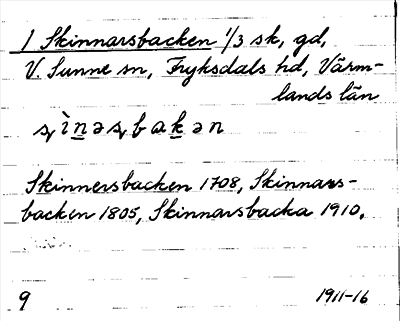 1 Skinnarsbacken 1/3 sk, gd,
V. Sunne sn, Fryksdals hd, Värm-
lands län
Skinnersbacken 1708, Skinnars-
backen 1805, Skinnarsbacka 1910.
9 1911-16